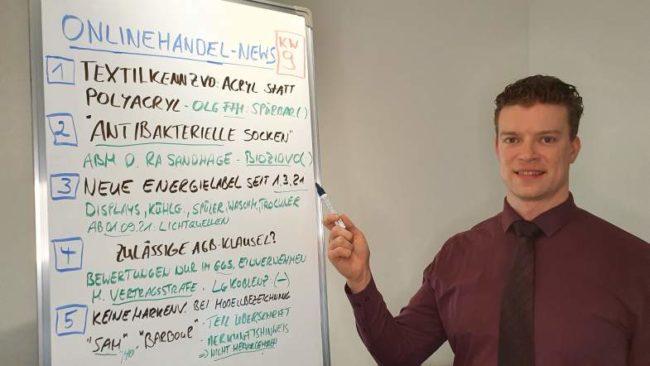 ONLINEHANDEL-NEWS
KW 9
1 TEXTILKENNZVO: ACRYL STATT
POLYACRYL - OLG FFM: SPÜRBAR ( )
2 "ANTIBAKTERIELLE SOCKEN"
ABM D. RA SANDHAGE - BIOZIDVO( )
3 NEUE ENERGIELABEL SEIT 1.3.21
DISPLAYS, KÜHLG., SPÜLER, WASCHM, TROCKNER
AB 01.09.21. LICHTQUELLEN
4 ZULÄSSIGE AGB-KLAUSEL?
BEWERTUNGEN NUR IM GGS. EINVERNEHMEN
M. VERTRAGSSTRAFE. LG KOBLENZ (-)
5 KEINE MARKENV. BEI MODELLBEZEICHNUNG
"SAM" "BARBOUR" - TEIL ÜBERSCHRIFT
- HERKUNFTSHINWEIS
=> NICHT HERVORGEHOBEN